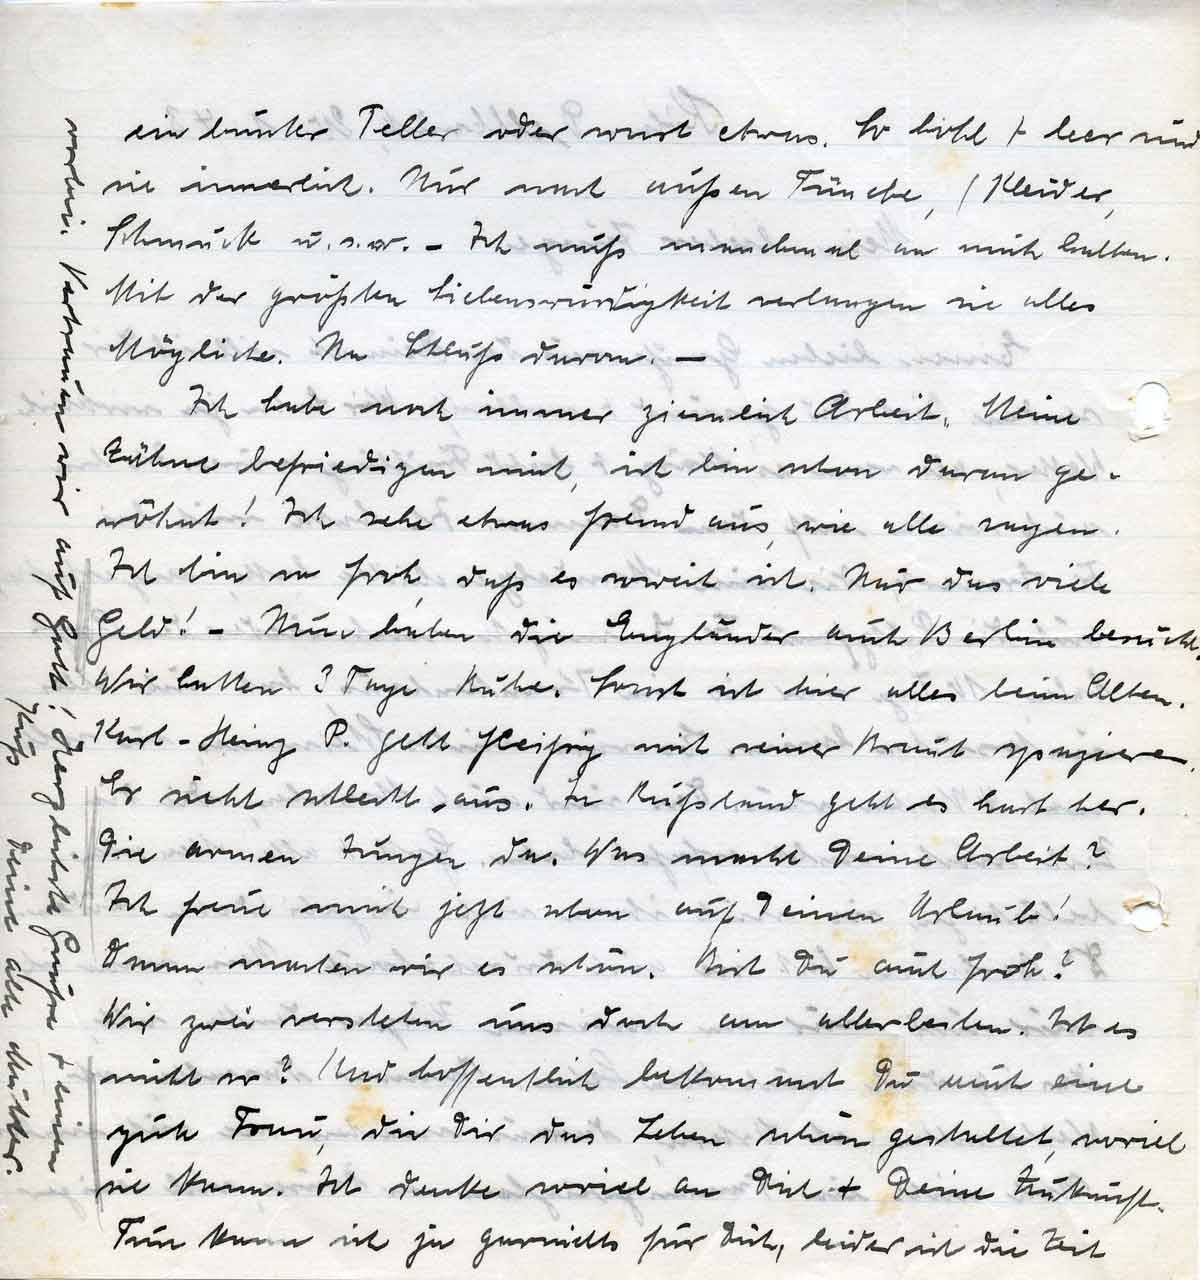 ein bunter Teller oder sonst etwas. So hohl + leer sind
sie innerlich. Nur nach außen Tünche, (Kleider,
Schmuck u.s.w. - Ich muß manchmal an mich halten.
Mit der größten Liebenswürdigkeit verlangen sie alles
Mögliche. Na Schluß davon. —
Ich habe noch immer ziemlich Arbeit. Meine
Zähne befriedigen mich, ich bin schon daran ge-
wöhnt! Ich sehe etwas fremd aus, wie alle sagen.
Ich bin so froh, daß es soweit ist. Nur das viele
Geld! - Nun haben die Engländer auch Berlin besucht.
Wir hatten 3 Tage Ruhe. Sonst ist hier alles beim Alten.
Karl-Heinz P. geht fleißig mit seiner Braut spazieren.
Er sieht schlecht aus. In Rußland geht es hart her.
Die armen Jungen da. Was macht Deine Arbeit?
Ich freue mich jetzt schon auf Deinen Urlaub!
Dann machen wir es schön. Bist Du auch froh?
Wir zwei verstehen uns doch am allerbesten. Ist es
nicht so? Und hoffentlich bekommst Du auch eine
gute Frau, die Dir das Leben schön gestaltet, soviel
sie kann. Ich denke soviel an Dich + Deine Zukunft.
Tun kann ich ja garnichts für Dich, leider ist die Zeit
vorbei. Vertrauen wir auf Gott! Herzlichste Grüße + einen
Kuß Deine alte Mutter.